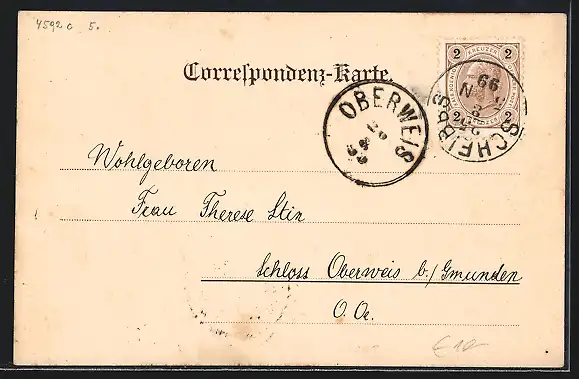 4592c 5.
2 KREUZER 2
Correspondenz-Karte.
SCHEIBBS
99
OBERWEIS
Wohlgeboren
Frau Therese Stix
Schloss Oberweis b./Gmunden
O. Oe.